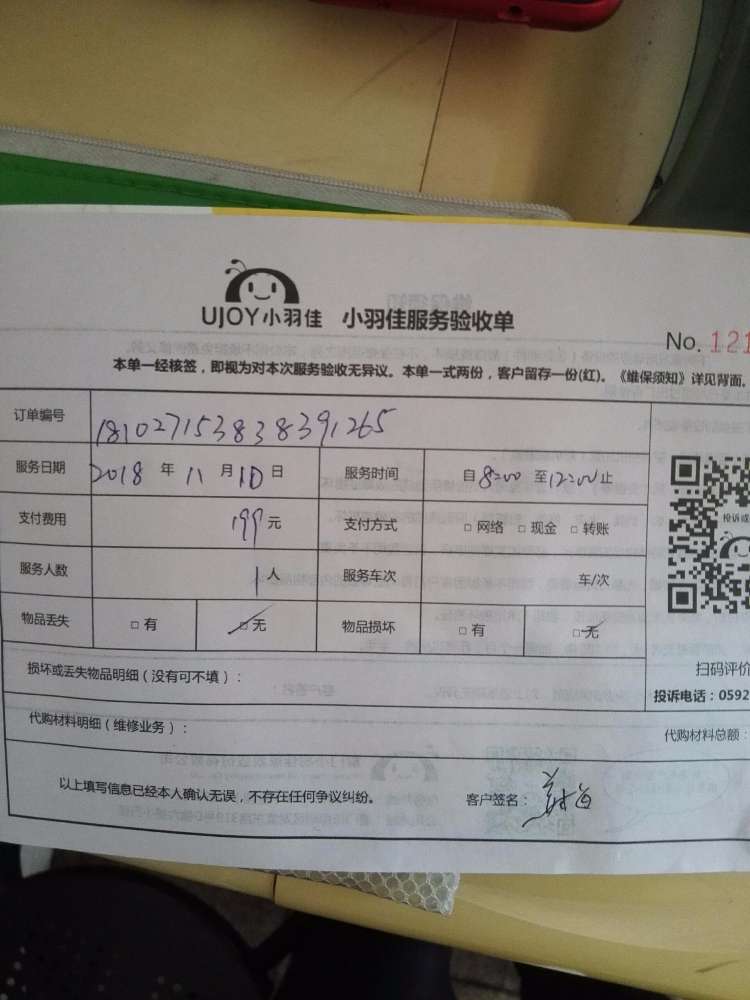 UJOY小羽佳 小羽佳服务验收单
No. 121
本单一经核签，即视为对本次服务验收无异议。本单一式两份，客户留存一份(红)。《维保须知》详见背面。
订单编号 181027153838391265
服务日期 2018 年 11 月 10 日 服务时间 自 8:00 至 12:00 止
支付费用 199 元 支付方式 □ 网络 □ 现金 □ 转账
投诉或
服务人数 1 人 服务车次 车/次
物品丢失 □ 有 □ 无 物品损坏 □ 有 □ 无
扫码评价
损坏或丢失物品明细（没有可不填）：
投诉电话：0592
代购材料明细（维修业务）：
代购材料总额：
以上填写信息已经本人确认无误，不存在任何争议纠纷。 客户签名：